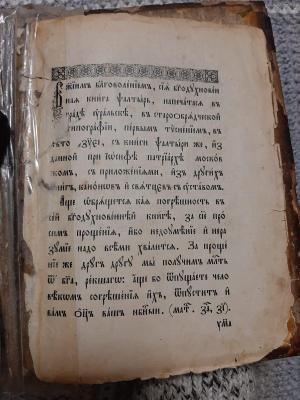 Бж҃їимъ бл҃говоленїемъ, сїѧ бг҃одꙋхновен
наѧ книга ѱалтырь, напечатасѧ въ
градѣ ꙋральскѣ, въ старообрѧдческой
типографїи, первымъ тꙋсненїемъ, въ
лѣто съ книги ѱалтыри же, из
данной при їѡсифѣ патрїархѣ москов
скомъ, съ приложенїѧми, изъ дрꙋгихъ
книгъ, канѡновъ и свѧтцевъ съ ꙋставомъ.
Аще ѡбрѧщетсѧ каѧ погрѣшность въ
сей бг҃одꙋхновеннѣй книгѣ, за сїе про
симъ прощенїѧ, ибо недоꙋмѣнїе и нера
зꙋмїе надо всѣми хвалитсѧ. За проще
нїе же дрꙋгъ дрꙋгꙋ мы полꙋчимъ млⷭ҇ть
ѿ бг҃а, рекшагѡ: аще бо ѿпꙋщаете чело
вѣкомъ согрѣшенїѧ ихъ, ѿпꙋститъ и
вамъ ѻц҃ъ вашъ нбⷭ҇ный. (матⷴ.